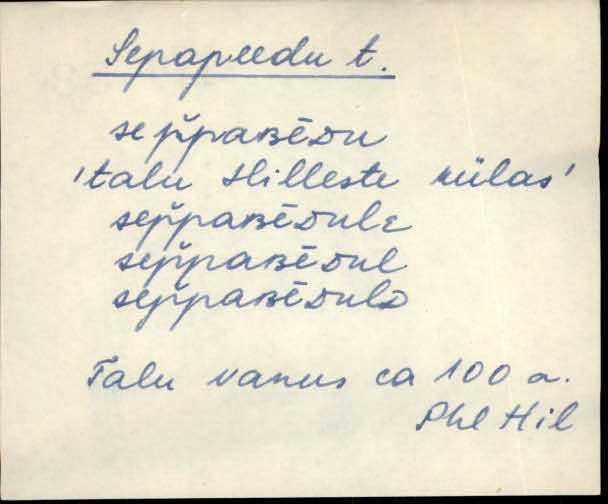 Sepapeedu t.
sep̆paʙēᴅu
'talu Hilleste külas'
sep̆paʙēᴅulɛ
sep̆paʙēᴅul
sep̆paʙēᴅulᴅ
Talu vanus ca 100 a.
Phl Hil